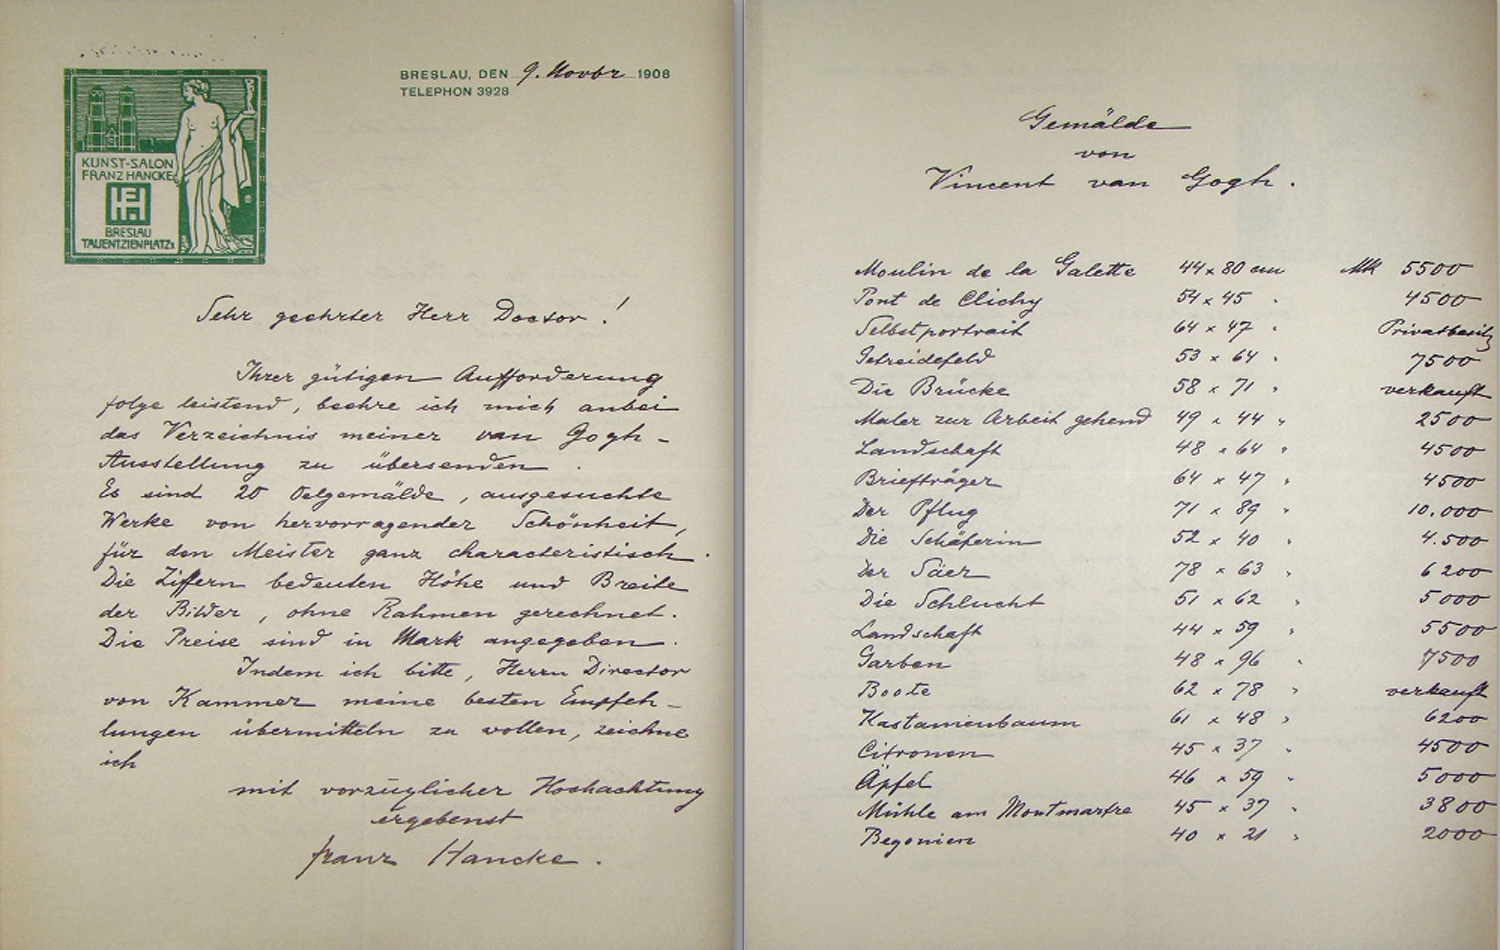 KUNST-SALON
FRANZ HANCKE
BRESLAU
TAUENTZIENPLATZ
BRESLAU, DEN 9. Novbr 1908
TELEPHON 3928
Sehr geehrter Herr Doctor!
Ihrer gütigen Aufforderung
folge leistend, beehre ich mich anbei
das Verzeichnis meiner van Gogh-
Ausstellung zu übersenden.
Es sind 20 Oelgemälde, ausgesuchte
Werke von hervorragender Schönheit,
für den Meister ganz characteristisch.
Die Ziffern bedeuten Höhe und Breite
der Bilder, ohne Rahmen gerechnet.
Die Preise sind in Mark angegeben.
Indem ich bitte, Herrn Director
von Kammer meine besten Empfeh-
lungen übermitteln zu wollen, zeichne
ich
mit vorzüglicher Hochachtung
ergebenst
Franz Hancke.
Gemälde
von
Vincent van Gogh.
Moulin de la Galette 44 x 80 cm Mk 5500
Pont de Clichy 54 x 45 " 4500
Selbstportrait 64 x 47 " Privatbesitz
Getreidefeld 53 x 64 " 7500
Die Brücke 58 x 71 " verkauft
Maler zur Arbeit gehend 49 x 44 " 2500
Landschaft 48 x 64 " 4500
Briefträger 64 x 47 " 4500
Der Pflug 71 x 89 " 10.000
Die Schäferin 52 x 40 " 4.500
Der Säer 78 x 63 " 6200
Die Schlucht 51 x 62 " 5000
Landschaft 44 x 59 " 5500
Garben 48 x 96 " 7500
Boote 62 x 78 " verkauft
Kastanienbaum 61 x 48 " 6200
Citronen 45 x 37 " 4500
Äpfel 46 x 59 " 5000
Mühle am Montmartre 45 x 37 " 3800
Begonien 40 x 21 " 2000